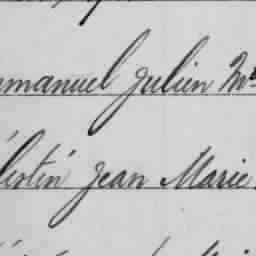 mmanuel Julien M
lestin Jean Marie